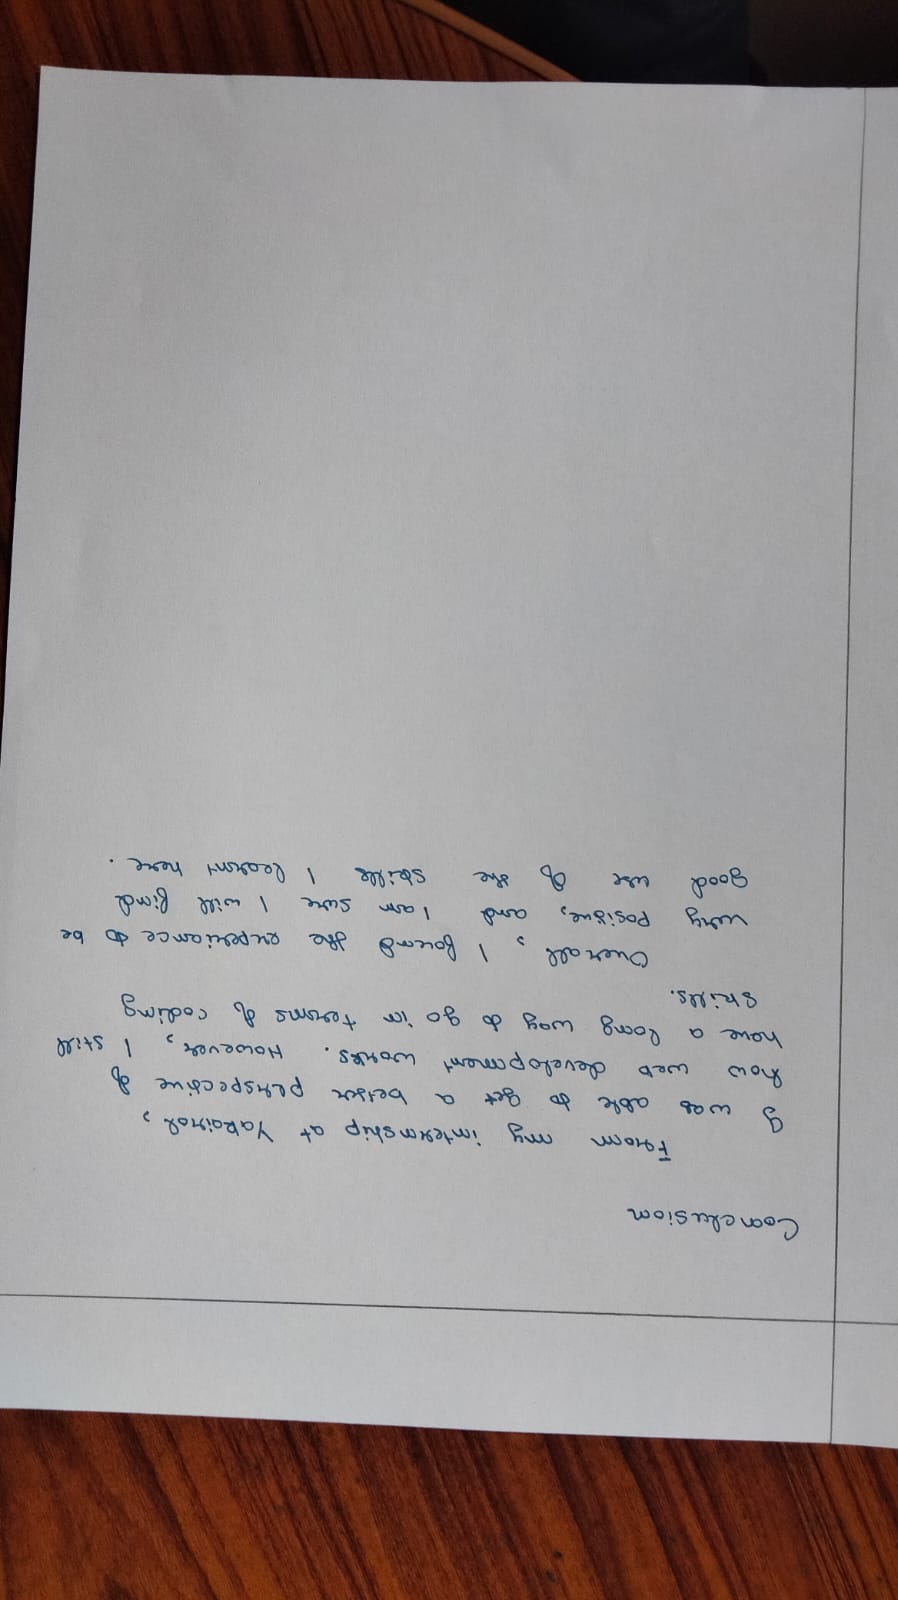 Conclusion
From my internship at Yakairol,
I was able to get a better perspective of
how web development works. However, I still
have a long way to go in terms of coding
skills.
Overall, I found the experiance to be
very positive, and I am sure I will find
good use of the skills I learnt here.